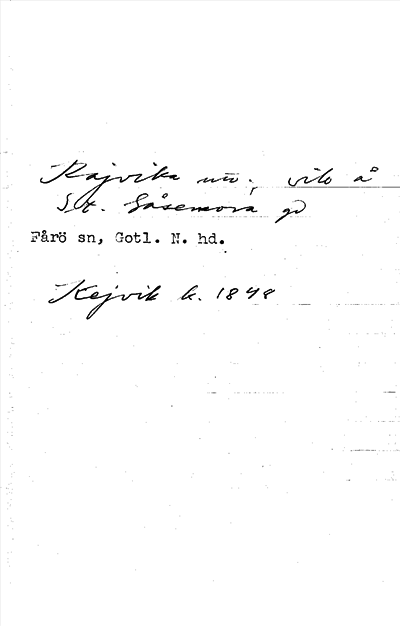 Kajvika un.; vik å
St. Gåsemora gd
Fårö sn, Gotl. N. hd.
Kejvik k. 1848